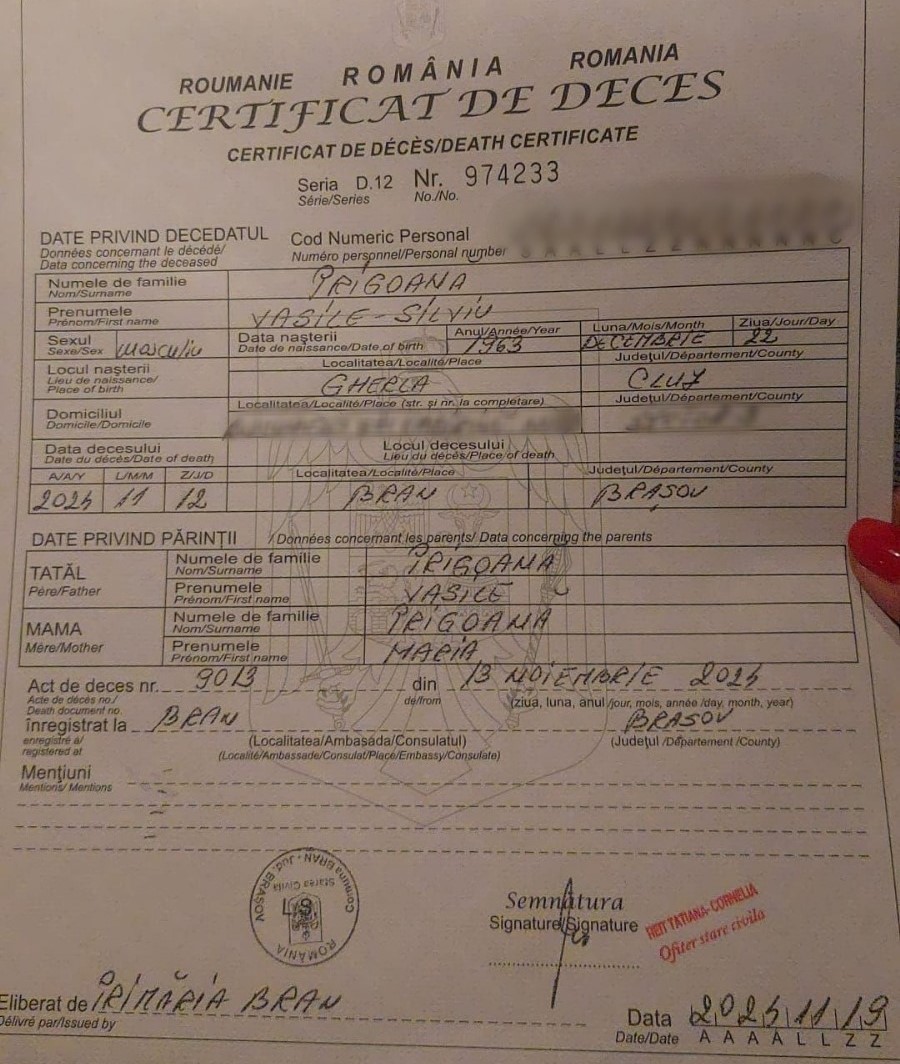 ROUMANIE ROMÂNIA ROMANIA
CERTIFICAT DE DECES
CERTIFICAT DE DÉCÈS/DEATH CERTIFICATE
Seria D.12 Nr. 974233
Série/Series No./No.
DATE PRIVIND DECEDATUL Cod Numeric Personal
Données concernant le décédé/ Numéro personnel/Personal number
Data concerning the deceased
Numele de familie PRIGOANA
Nom/Surname
Prenumele VASILE-SILVIU
Prénom/First name
Sexul Masculin Data naşterii Anul/Année/Year Luna/Mois/Month Ziua/Jour/Day
Sexe/Sex Date de naissance/Date of birth 1963 DECEMBRIE 22
Locul naşterii Localitatea/Localité/Place Judeţul/Département/County
Lieu de naissance/ GHERLA CLUJ
Place of birth
Domiciliul Localitatea/Localité/Place (str. şi nr. la completare) Judeţul/Département/County
Domicile/Domicile
Data decesului Locul decesului
Date du décès/Date of death Lieu du décès/Place of death
A/A/Y L/M/M Z/J/D Localitatea/Localité/Place Judeţul/Département/County
2024 11 12 BRAN BRAŞOV
DATE PRIVIND PĂRINŢII / Données concernant les parents/ Data concerning the parents
TATĂL Numele de familie PRIGOANA
Père/Father Nom/Surname
Prenumele VASILE
Prénom/First name
MAMA Numele de familie PRIGOANA
Mère/Mother Nom/Surname
Prenumele MARIA
Prénom/First name
Act de deces nr. 9013 din 13 NOIEMBRIE 2024
Acte de décès no./ de/from (ziua, luna, anul /jour, mois, année /day, month, year)
Death document no.
înregistrat la BRAN BRASOV
enregistré a/ (Localitatea/Ambasada/Consulatul) (Judeţul /Département /County)
registered at (Localité/Ambassade/Consulat/Place/Embassy/Consulate)
Menţiuni
Mentions/ Mentions
Comuna BRAN - Jud. BRASOV
Starea Civilă
ROMÂNIA
Semnătura
Signature/Signature
TATIANA-CORNELIA
Ofiter stare civila
Eliberat de PRIMĂRIA BRAN
Délivré par/Issued by
Data 2024 11 19
Date/Date A A A A L L Z Z